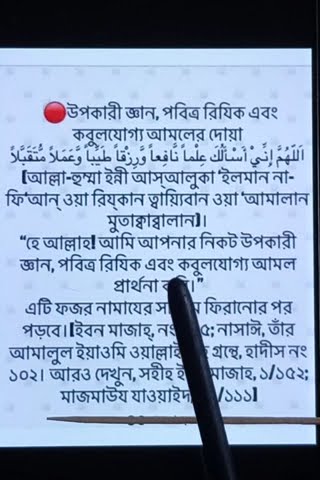 🔴উপকারী জ্ঞান, পবিত্র রিযিক এবং
কবুলযোগ্য আমলের দোয়া
اَللّٰهُمَّ إِنِّيْ أَسْأَلُكَ عِلْماً نَّافِعاً وَّرِزْقاً طَيِّباً وَّعَمَلاً مُّتَقَبَّلاً
(আল্লা-হুম্মা ইন্নী আস্আলুকা ‘ইলমান না-
ফি‘আন্ ওয়া রিয্‌কান ত্বায়্যিবান ওয়া ‘আমালান
মুতাক্বাব্বালান)।
“হে আল্লাহ! আমি আপনার নিকট উপকারী
জ্ঞান, পবিত্র রিযিক এবং কবুলযোগ্য আমল
প্রার্থনা
এটি ফজর নামাযের ফিরানোর পর
পড়বে। [ইবন মাজাহ্, নং নাসাঈ, তাঁর
আমালুল ইয়াওমি গ্রন্থে, হাদীস নং
১০২। আরও দেখুন, সহীহ মাজাহ, ১/১৫২;
মাজমাউয /১১১]